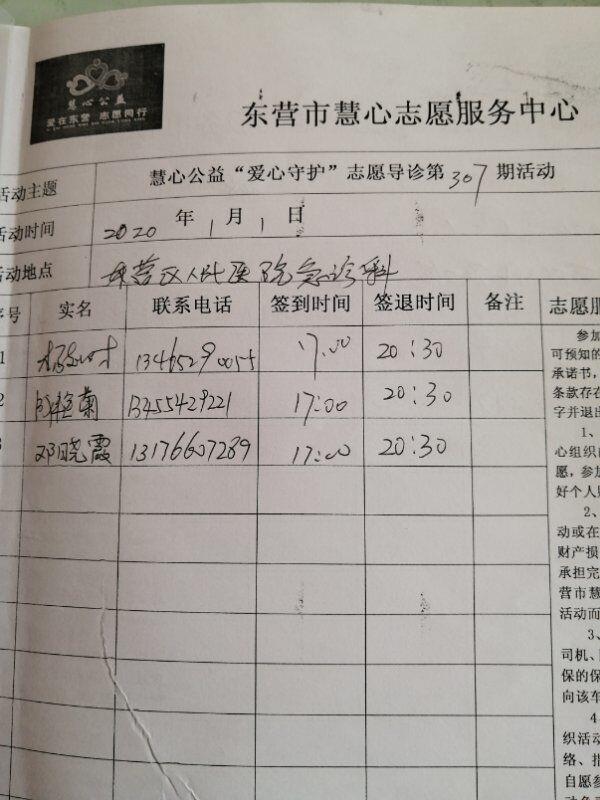 慧心公益
爱在东营 志愿同行
东营市慧心志愿服务中心
活动主题 慧心公益“爱心守护”志愿导诊第307期活动
活动时间 2020年1月1日
活动地点 东营区人民医院急诊科
序号 实名 联系电话 签到时间 签退时间 备注 志愿服
1 13465290055 17:00 20:30
2 13455429221 17:00 20:30
3 邓晓霞 13176607289 17:00 20:30
参加
可预知的
承诺书，
条款存在
字并退出
1、
心组织的
愿，参加
好个人财
2、
动或在
财产损
承担完
营市慧
活动而
3、
司机、
保的保
向该车
4
织活动
络、指
自愿参